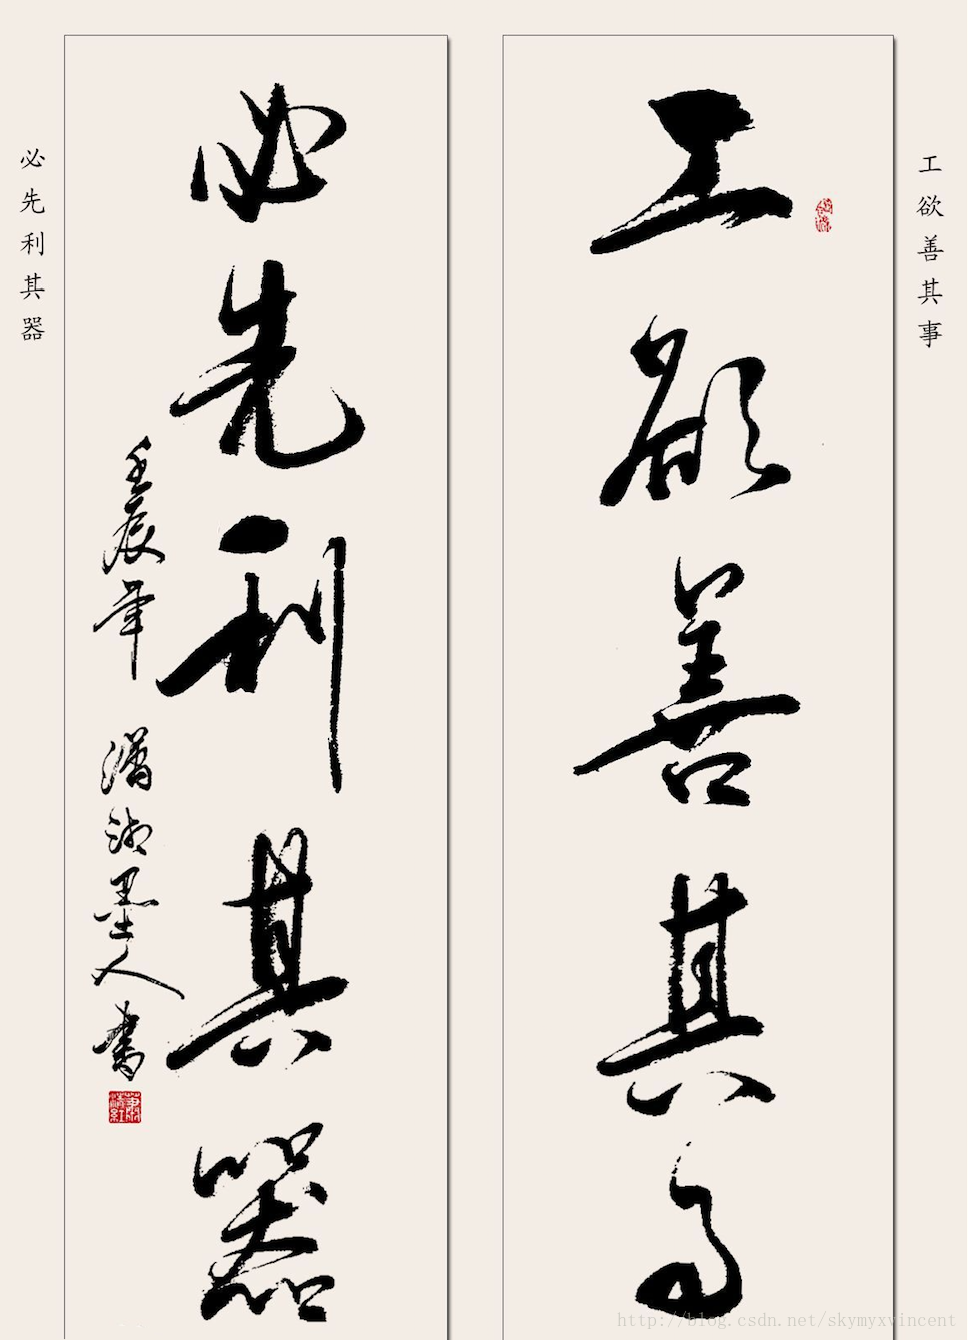 工欲善其事
工欲善其事
必先利其器
壬辰年 潇湘墨人书
必先利其器
http://blog.csdn.net/skymyxvincent